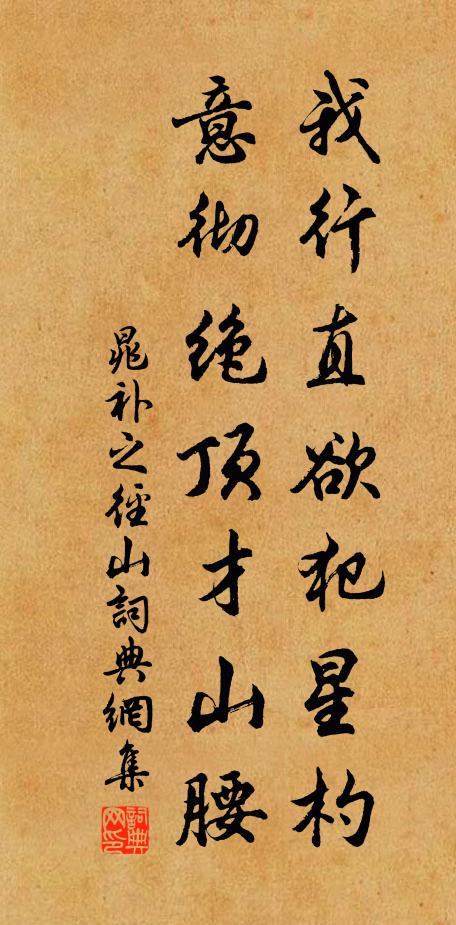 我行直欲犯星杓
意彻绝顶才山腰
晁补之径山詞典網集
詞典网印